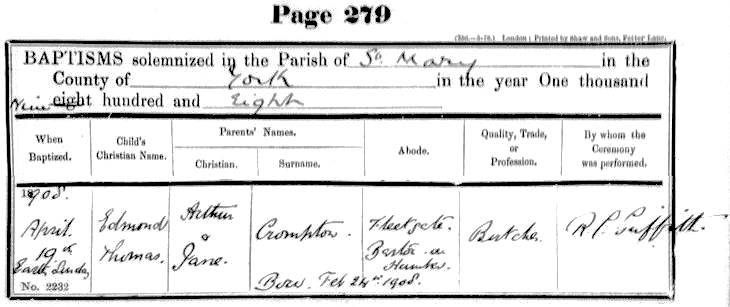 Page 279
(256.—3-78.) London: Printed by Shaw and Sons, Fetter Lane.
BAPTISMS solemnized in the Parish of St. Mary in the
County of York in the year One thousand
Nine eight hundred and Eight
When Baptized.
Child's Christian Name.
Parents' Names.
Christian.
Surname.
Abode.
Quality, Trade, or Profession.
By whom the Ceremony was performed.
1908.
April
19th
Easter Sunday
No. 2232
Edmond
Thomas.
Arthur
&
Jane.
Crompton.
Fleetgate.
Barton on
Humber.
Butcher
R. C. Griffith.
Born. Feb 24th 1908.